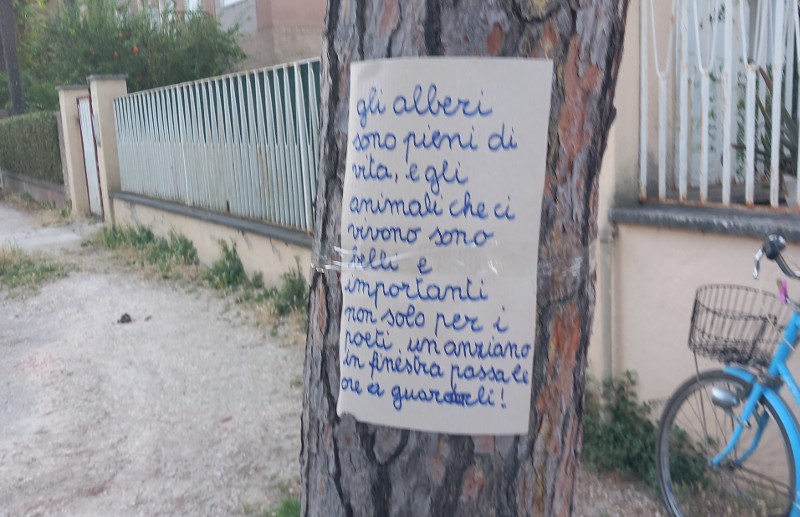 gli alberi
sono pieni di
vita, e gli
animali che ci
vivono sono
belli e
importanti
non solo per i
poeti un anziano
in finestra passa le
ore a guardarli!